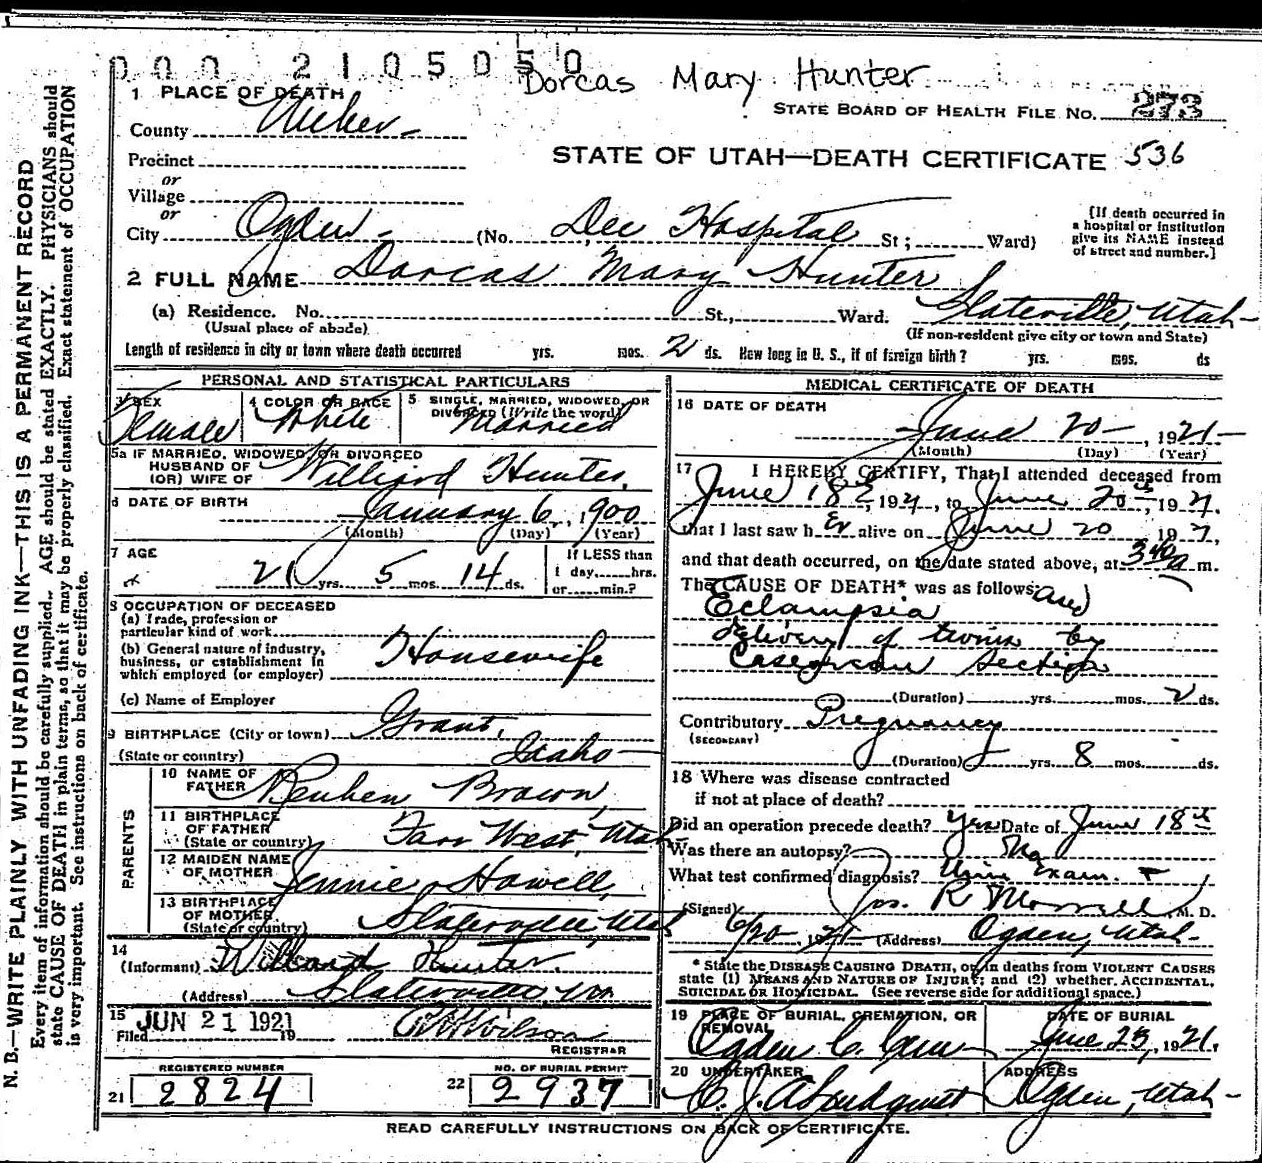 000 2105050
Dorcas Mary Hunter
1 PLACE OF DEATH
STATE BOARD OF HEALTH FILE No. 273
County Weber
STATE OF UTAH—DEATH CERTIFICATE 536
Precinct
or
Village
or
City Ogden (No. Dee Hospital St; Ward)
[If death occurred in
a hospital or institution
give its NAME instead
of street and number.]
2 FULL NAME Dorcas Mary Hunter
(a) Residence. No. St., Ward. Slaterville, Utah
(Usual place of abode) (If non-resident give city or town and State)
Length of residence in city or town where death occurred yrs. mos. 2 ds. How long in U. S., if of foreign birth? yrs. mos. ds
PERSONAL AND STATISTICAL PARTICULARS
3 SEX Female
4 COLOR OR RACE White
5 SINGLE, MARRIED, WIDOWED, OR
DIVORCED (Write the word)
Married
5a IF MARRIED, WIDOWED, OR DIVORCED
HUSBAND OF
(OR) WIFE OF Williard Hunter
6 DATE OF BIRTH
January 6, 1900
(Month) (Day) (Year)
7 AGE
21 yrs. 5 mos. 14 ds.
If LESS than
1 day, hrs.
or min.?
8 OCCUPATION OF DECEASED
(a) Trade, profession or
particular kind of work
(b) General nature of industry,
business, or establishment in
which employed (or employer) Housewife
(c) Name of Employer
9 BIRTHPLACE (City or town) Grant,
(State or country) Idaho
PARENTS
10 NAME OF
FATHER Reuben Brown,
11 BIRTHPLACE
OF FATHER
(State or country) Farr West, Utah
12 MAIDEN NAME
OF MOTHER Jennie Howell,
13 BIRTHPLACE
OF MOTHER
(State or country) Slaterville, Utah
14
(Informant) Willard Hunter.
(Address) Slaterville,
15
Filed JUN 21 1921 19
Wilson
REGISTRAR
REGISTERED NUMBER
21 2824
NO. OF BURIAL PERMIT
22 2937
MEDICAL CERTIFICATE OF DEATH
16 DATE OF DEATH
June 20, 1921
(Month) (Day) (Year)
17 I HEREBY CERTIFY, That I attended deceased from
June 18, 1921, to June 20th, 1921.
that I last saw her alive on June 20 1921,
and that death occurred, on the date stated above, at 340 a m.
The CAUSE OF DEATH* was as follows:
Eclampsia and
delivery of twins by
Caesarean section
(Duration) yrs. mos. 2 ds.
Contributory Pregnancy
(SECONDARY)
(Duration) yrs. 8 mos. ds.
18 Where was disease contracted
if not at place of death?
Did an operation precede death? Yes Date of June 18th
Was there an autopsy? No
What test confirmed diagnosis? Urine Exam.
(Signed) Jos. R Morrell M. D.
6/20, 1921 (Address) Ogden, Utah
* State the DISEASE CAUSING DEATH, or in deaths from VIOLENT CAUSES
state (1) MEANS AND NATURE OF INJURY; and (2) whether ACCIDENTAL,
SUICIDAL OR HOMICIDAL. (See reverse side for additional space.)
19 PLACE OF BURIAL, CREMATION, OR
REMOVAL
Ogden C. Cem
DATE OF BURIAL
June 23, 1921.
20 UNDERTAKER
C. J. A. Lindquist
ADDRESS
Ogden, Utah
READ CAREFULLY INSTRUCTIONS ON BACK OF CERTIFICATE.
N. B.—WRITE PLAINLY WITH UNFADING INK—THIS IS A PERMANENT RECORD
Every item of information should be carefully supplied. AGE should be stated EXACTLY. PHYSICIANS should
state CAUSE OF DEATH in plain terms, so that it may be properly classified. Exact statement of OCCUPATION
is very important. See instructions on back of certificate.